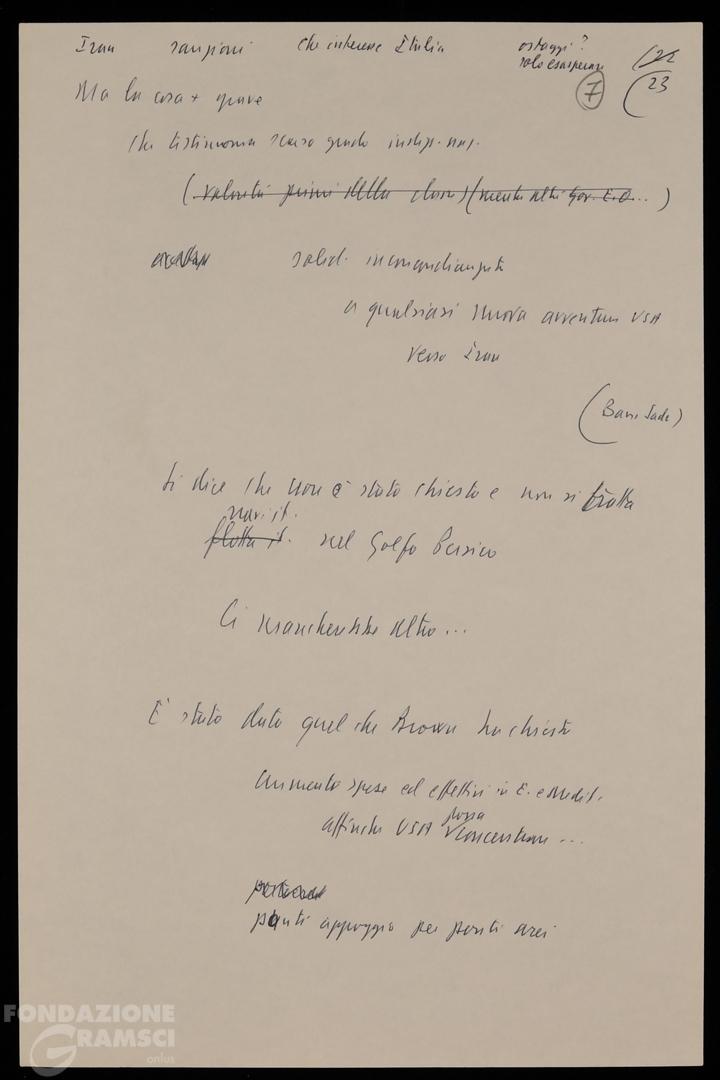 Iran sanzioni che interesse Italia ostaggi?
solo esasperare
22
23
7
Ma la cosa + grave
che testimonia scarso grado indip. naz.
(volontà primi della classe) (mentre altri Gov. E.O...)
solid. incondizionata
a qualsiasi nuova avventura USA
verso Iran
(Bani Sadr)
Si dice che non è stato chiesto e non si tratta
navi it.
flotta it. nel Golfo Persico
Ci mancherebbe altro...
È stato dato quel che Brown ha chiesto
aumento spese ed effettivi in E. e Medit.
affinché USA possa concentrare...
punti appoggio per ponti aerei
FONDAZIONE
GRAMSCI
onlus